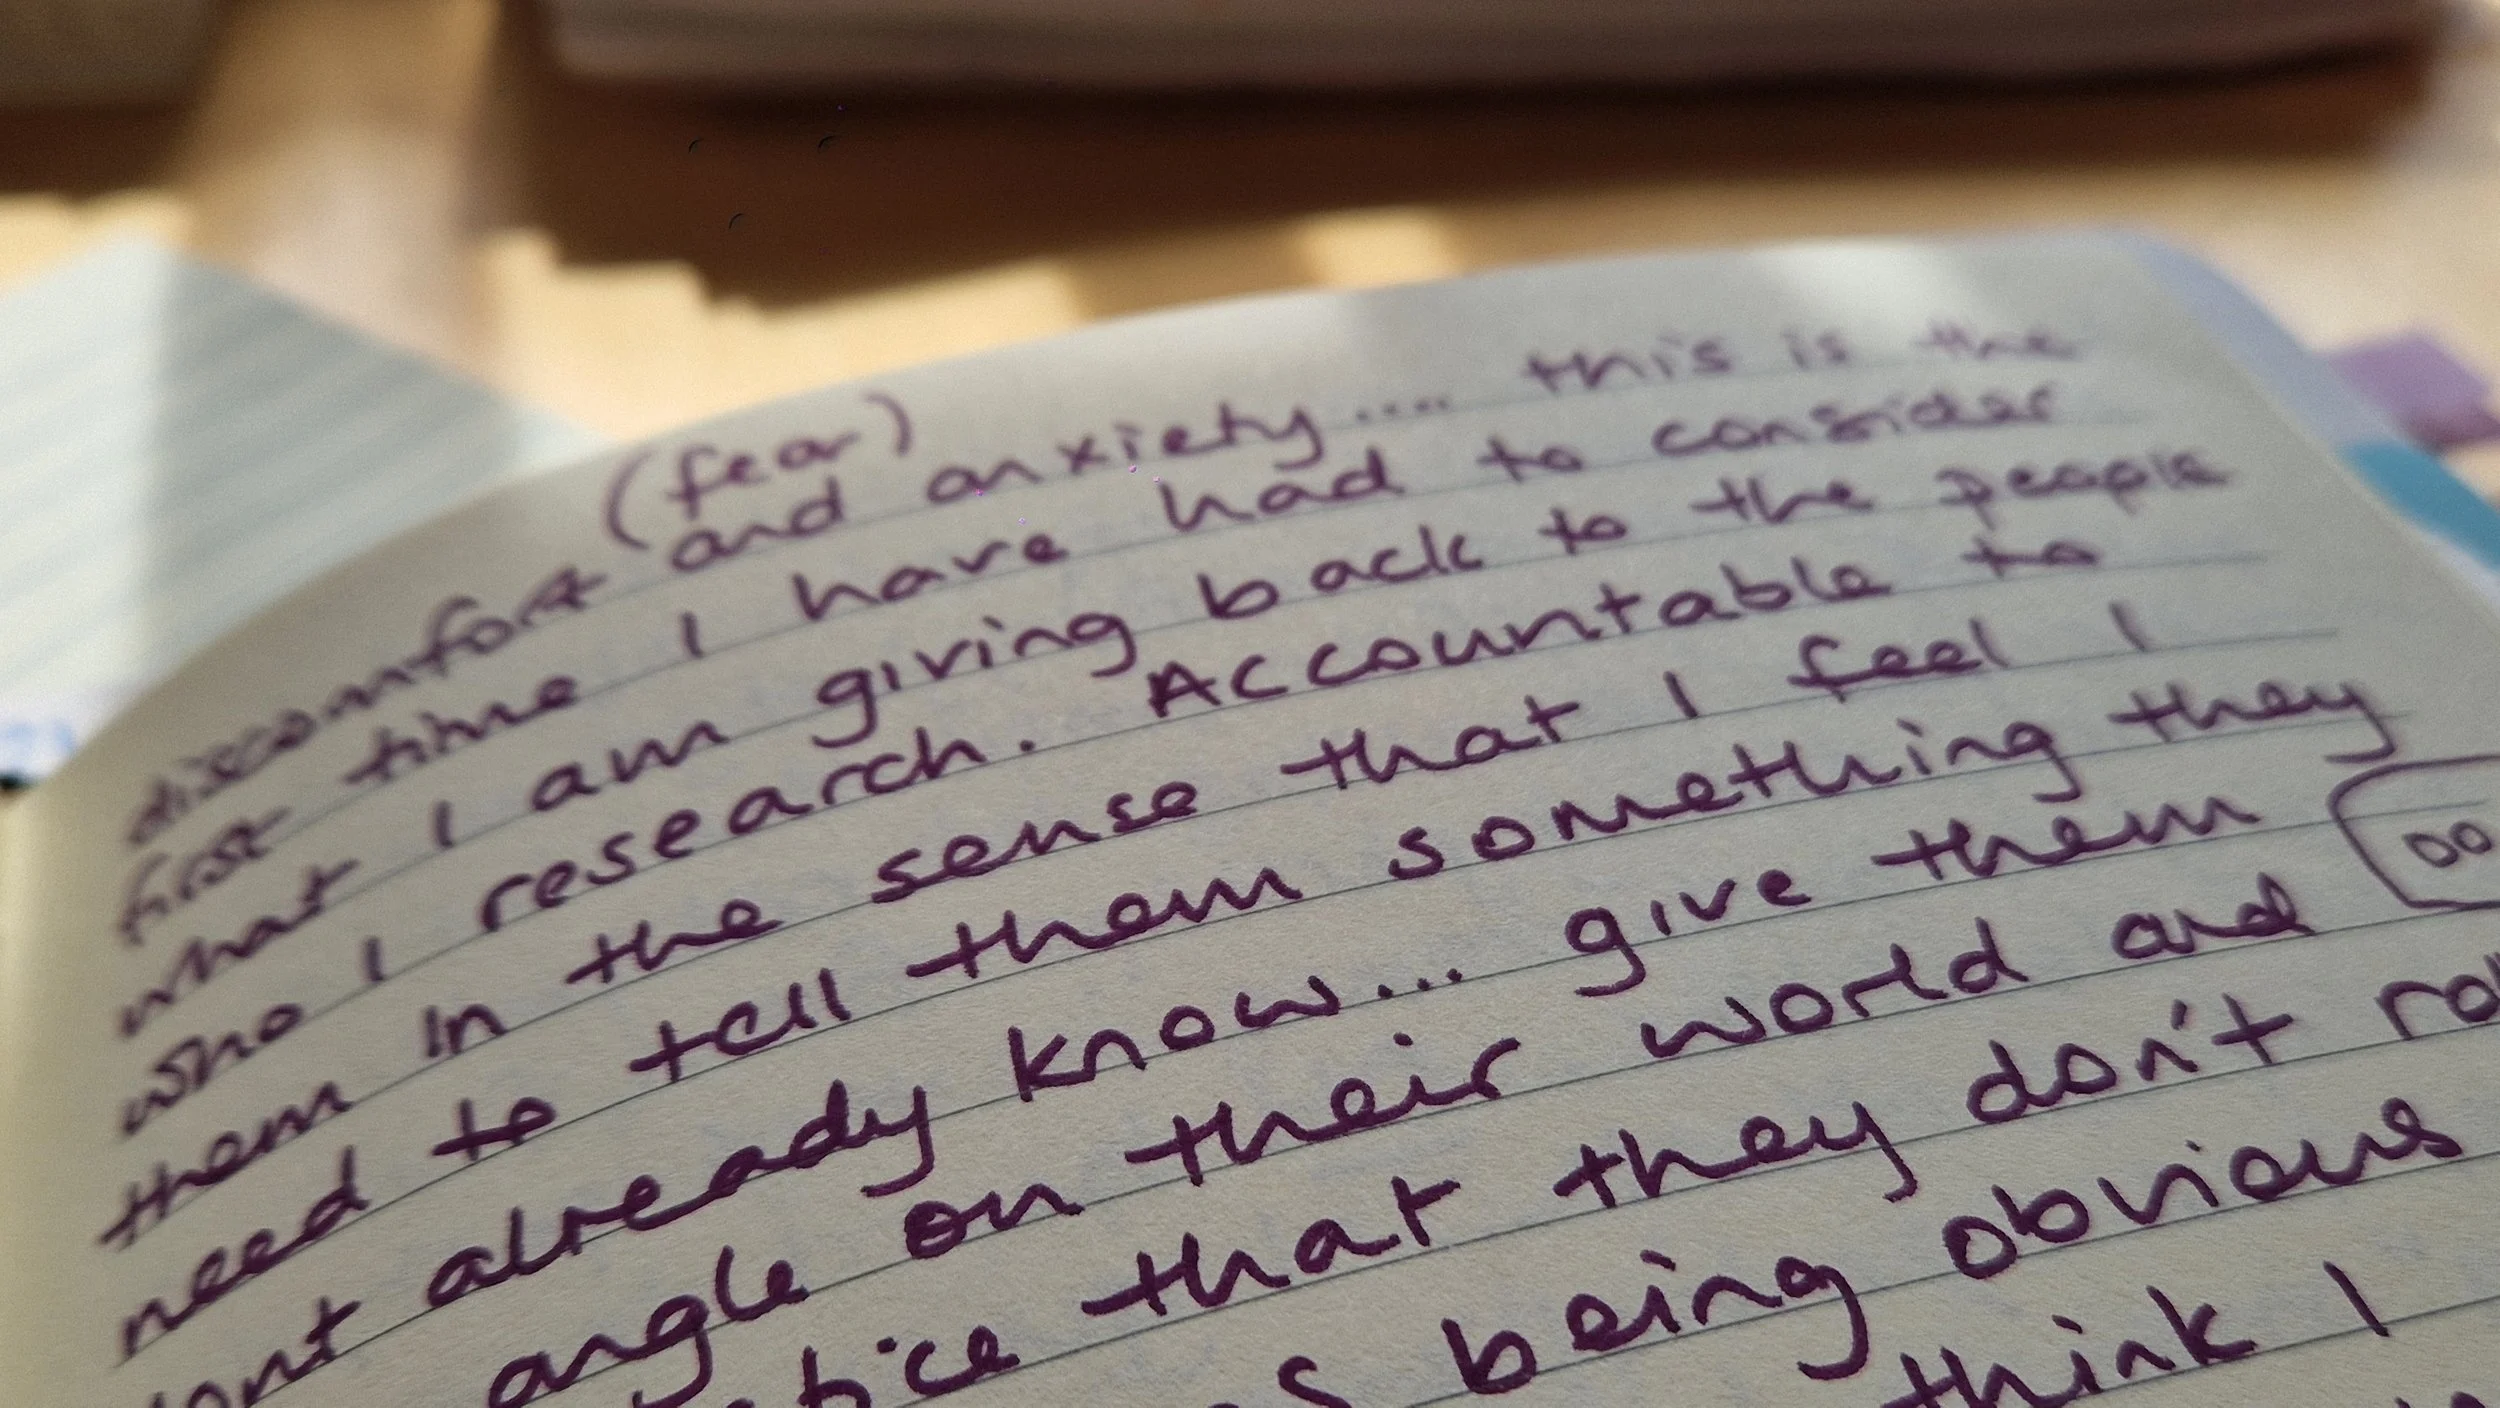 (fear)
discomfort and anxiety.... this is the
first time I have had to consider
what I am giving back to the people
who I research. Accountable to
them in the sense that I feel I
need to tell them something they
dont already know... give them
angle on their world and
that they don't
being obvious
think I